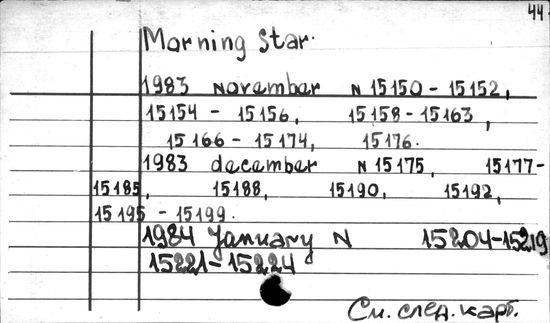 44.
Morning Star.
1983 november N 15150 - 15152,
15154 - 15156, 15158 - 15163,
15166 - 15174, 15176.
1983 december N 15175, 15177-
15185, 15188, 15190, 15192,
15195 - 15199.
1984 January N 15204-15219
15221-15224
См. след. карт.